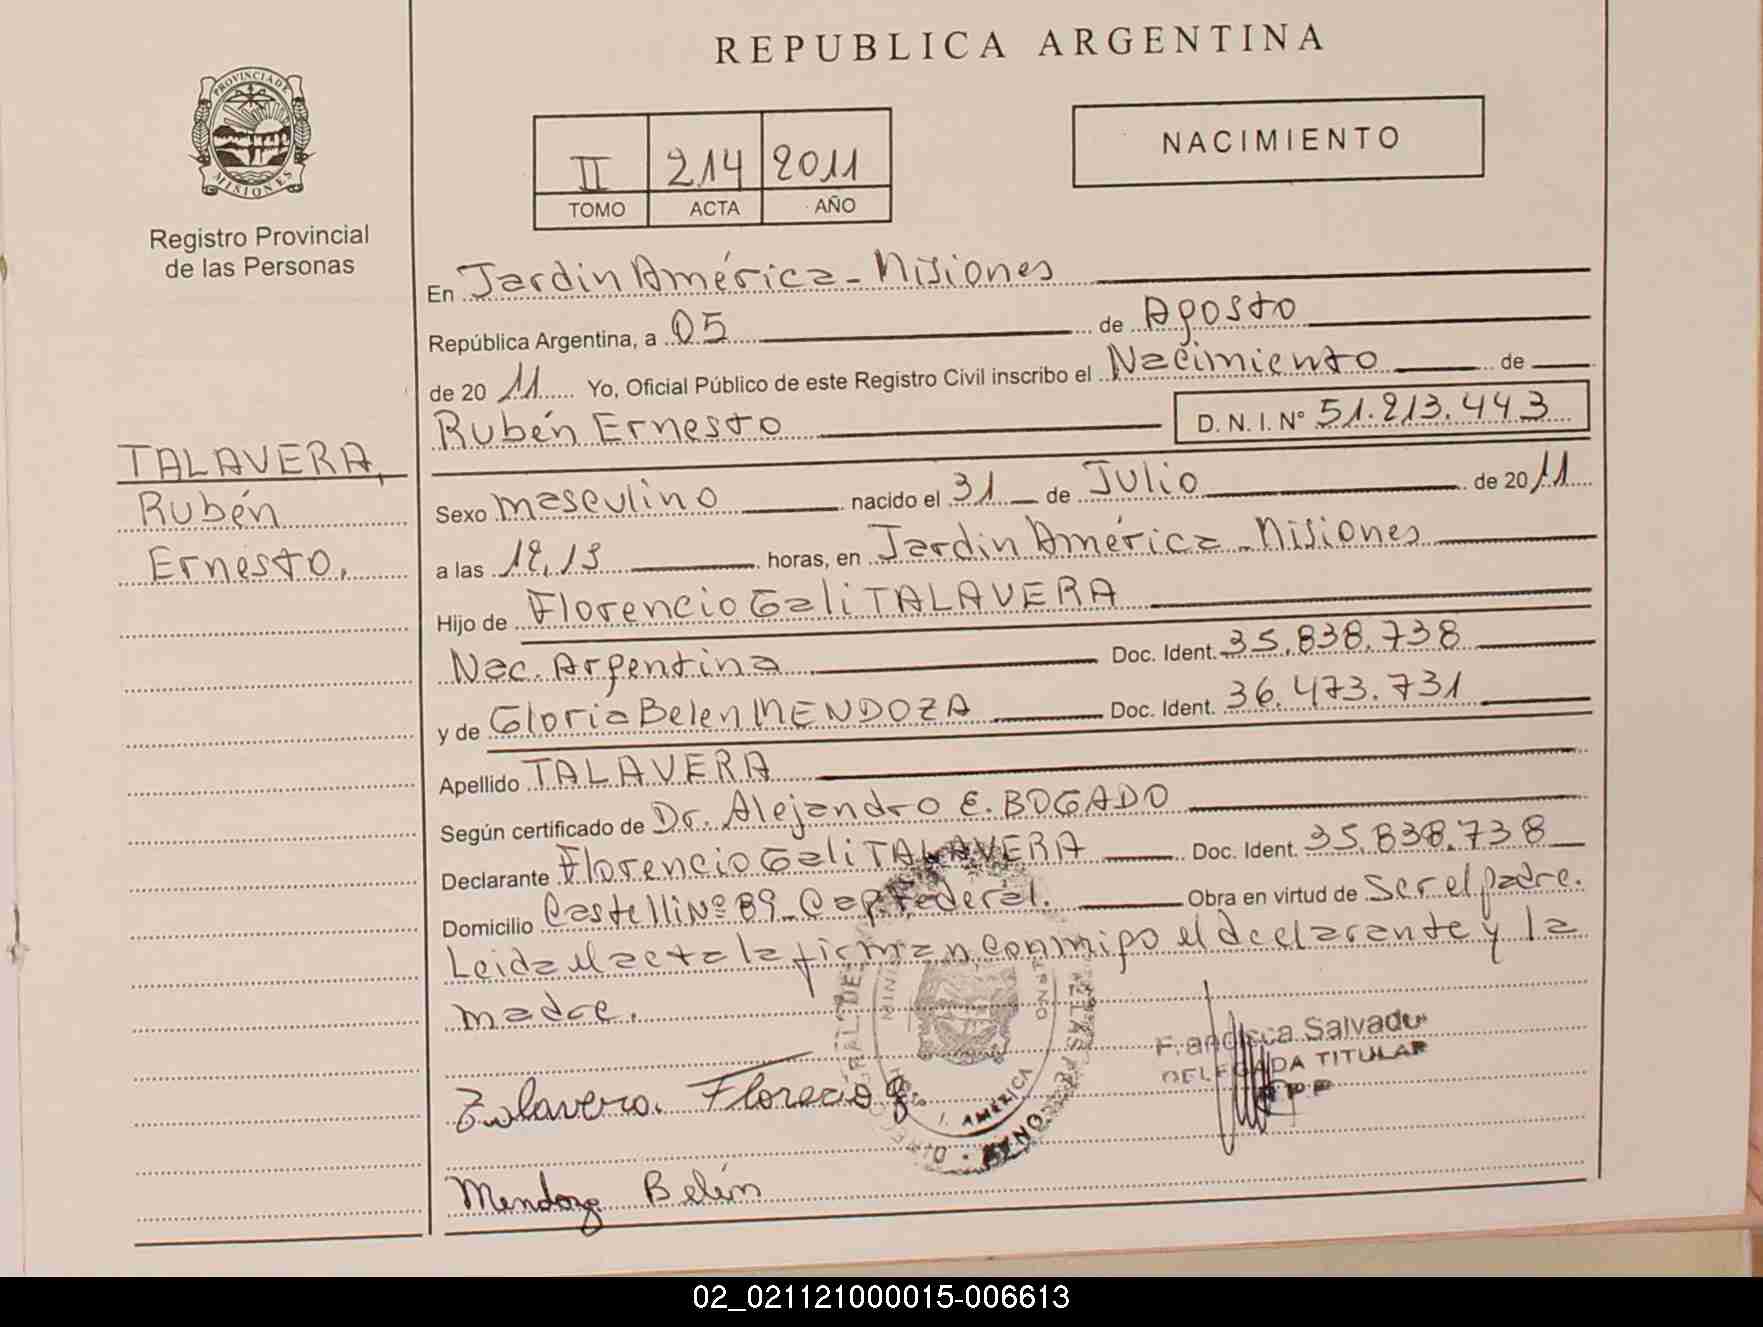 REPUBLICA ARGENTINA
PROVINCIA DE MISIONES
Registro Provincial
de las Personas
II 214 2011
TOMO ACTA AÑO
NACIMIENTO
TALAVERA,
Rubén
Ernesto.
En Jardin América - Misiones
República Argentina, a 05 de Agosto
de 20 11 Yo, Oficial Público de este Registro Civil inscribo el Nacimiento de
Rubén Ernesto D. N. I. Nº 51.213.443
Sexo masculino nacido el 31 de Julio de 20 11
a las 12,13 horas, en Jardin América - Misiones
Hijo de Florencio Gali TALAVERA
Nac. Argentina Doc. Ident. 35.838.738
y de Gloria Belen MENDOZA Doc. Ident. 36.473.731
Apellido TALAVERA
Según certificado de Dr. Alejandro E. BOGADO
Declarante Florencio Gali TALAVERA Doc. Ident. 35.838.738
Domicilio Castelli Nº 89 - Cap. Federal. Obra en virtud de ser el padre.
Leida el acta la firman conmigo el declarante y la
madre.
Francisca Salvadu
DELEGADA TITULAR
RPP
Talavera. Florecio G.
AMERICA
Mendoza Belén
02_021121000015-006613